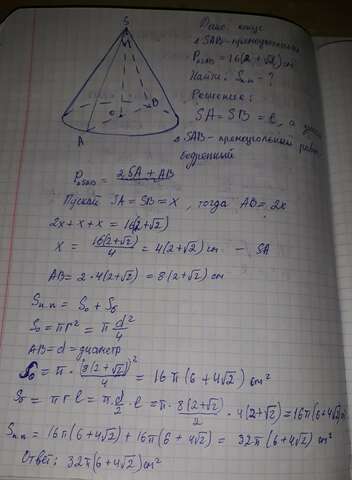 S
A
B
O
Дано: конус
△SAB - прямоугольный
P△SAB = 16(2+√2) cm
Найти: Sп.п = ?
Решение:
SA = SB = ℓ, а значит
△SAB - прямоугольный равно-
бедренный
P△SAB = 2SA + AB
Пускай SA = SB = x, тогда AB = 2x
2x + x + x = 16(2+√2)
x = 16(2+√2)/4 = 4(2+√2) cm - SA
AB = 2·4(2+√2) = 8(2+√2) cm
Sп.п. = So + Sб
So = πr² = π d²/4
AB = d = диаметр
So = π · (8(2+√2))²/4 = 16π(6+4√2) cm²
Sб = πrℓ = π·d/2·ℓ = π·8(2+√2)/2 · 4(2+√2) = 16π(6+4√2)
Sп.п = 16π(6+4√2) + 16π(6+4√2) = 32π(6+4√2) cm²
Ответ: 32π(6+4√2) cm²